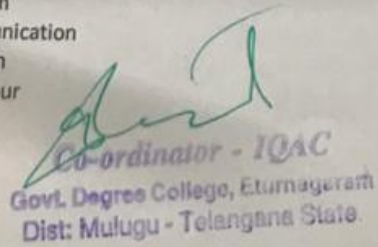 nication
ur
Co-ordinator - IQAC
Govt. Degree College, Eturnagaram
Dist: Mulugu - Telangana State.